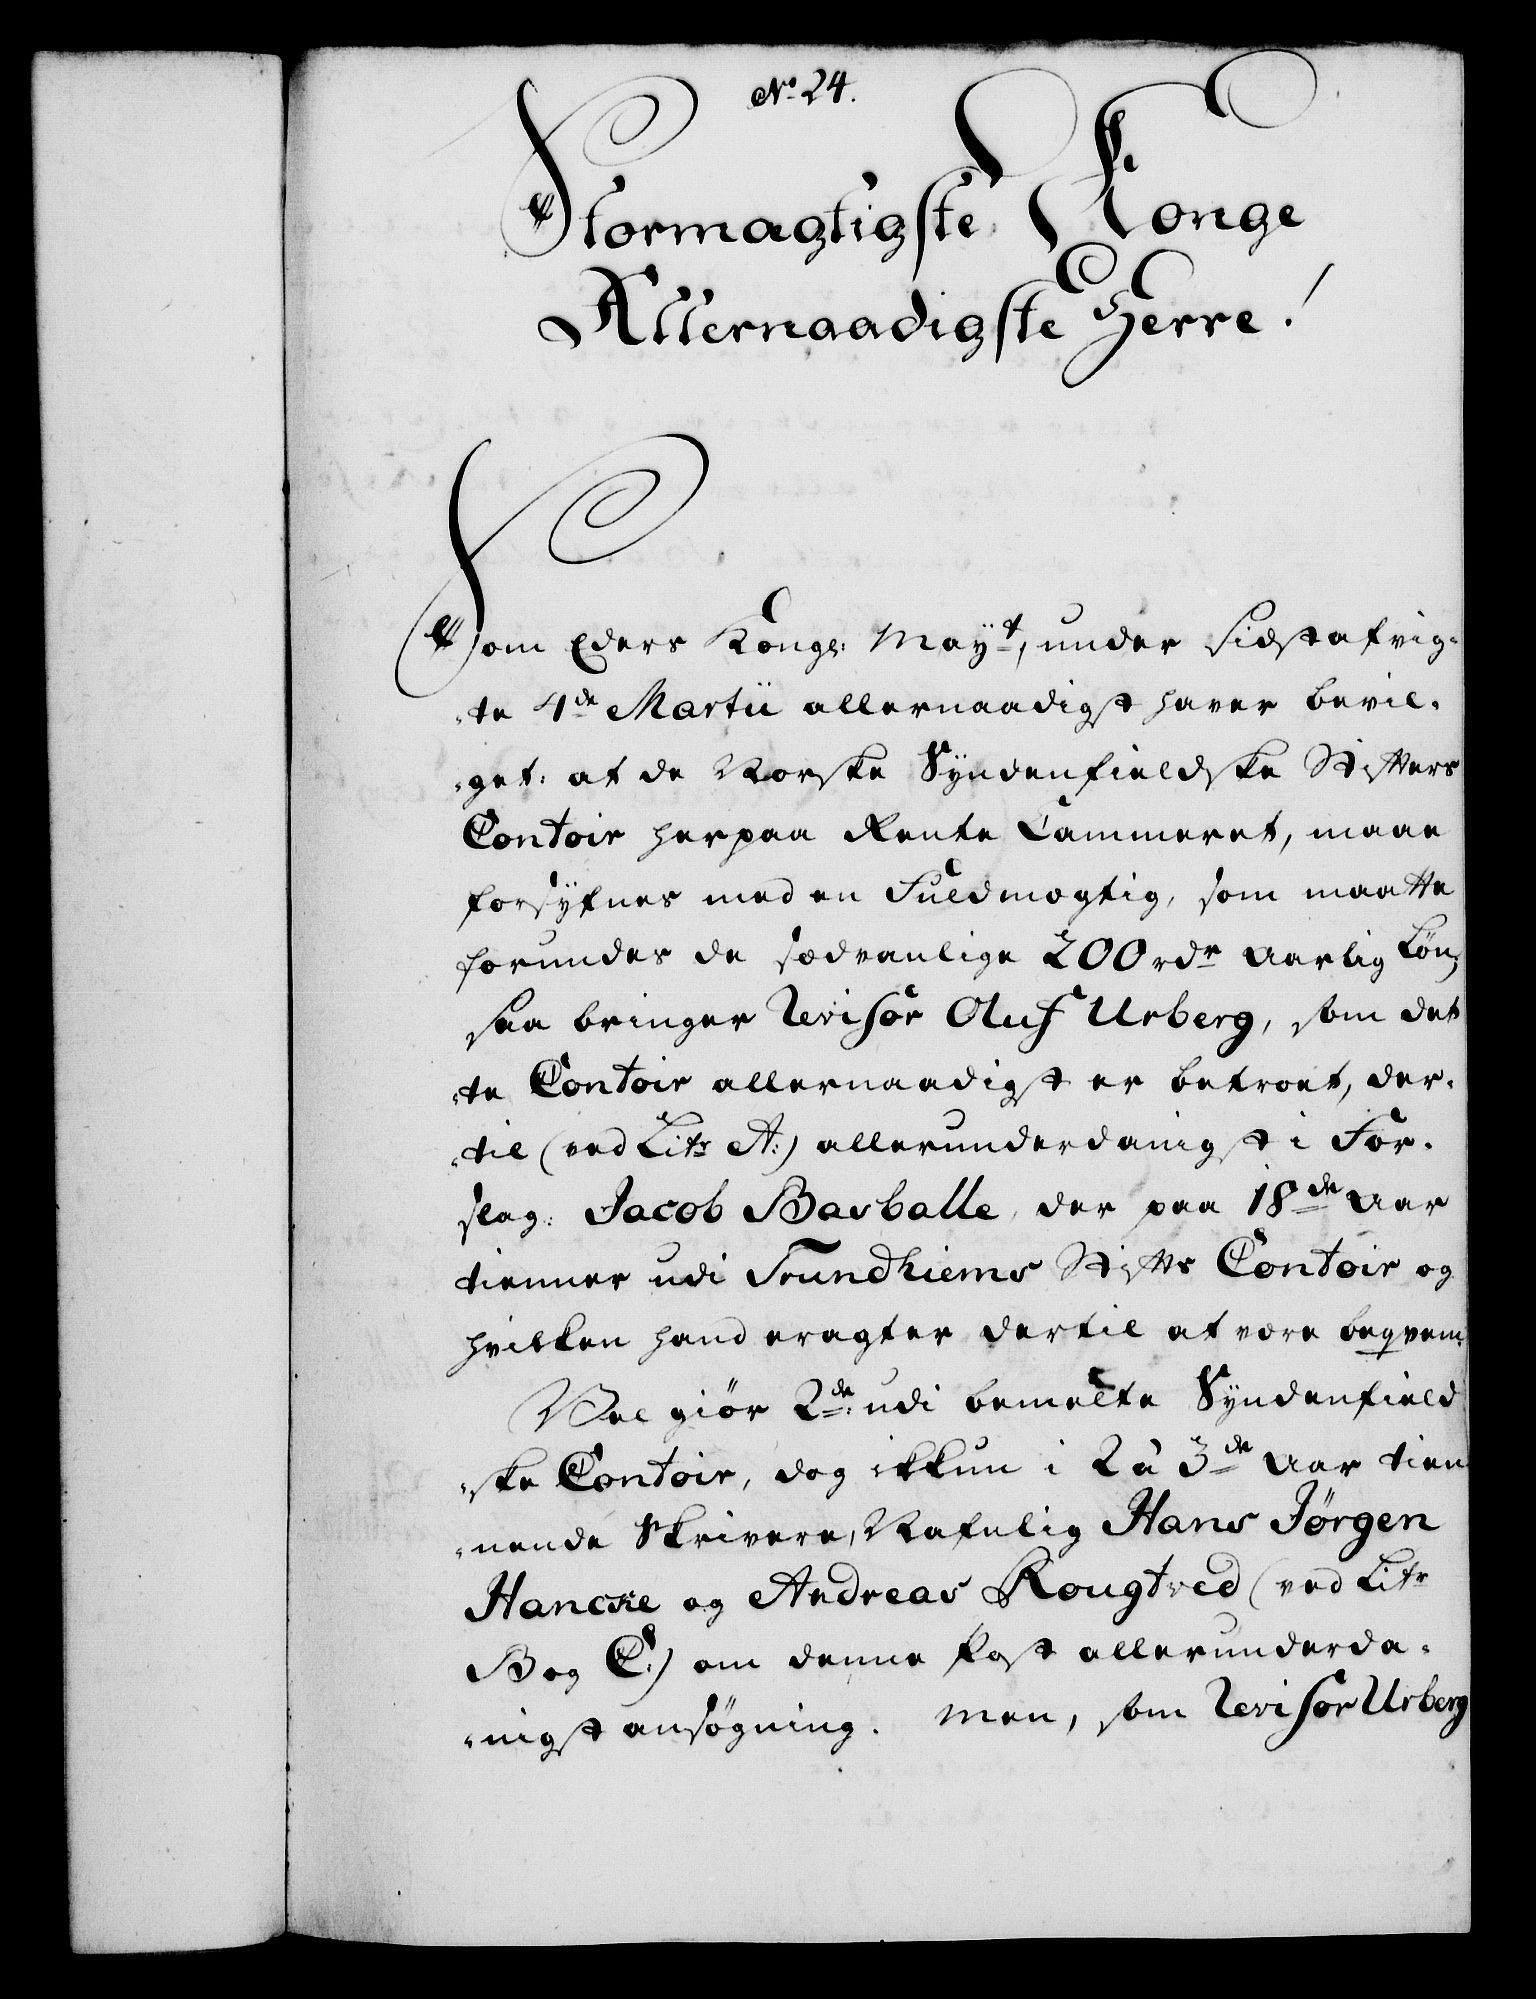 No. 24.
Stormagtigste Konge
Allernaadigste Herre!
Som Eders Kongl: Mayt, under sidstafvig-
-te 4de Martii allernaadigst haver bevil-
-get: at de Norske Syndenfieldske Stifters
Contoir herpaa Rente Cammeret, maae
forsÿfnes med en Fuldmægtig, som maatte
forundes de sædvanlige 200 rdr aarlig Løn;
saa bringer Revisor Oluf Urberg, som det
-te Contoir allernaadigst er betroet, der-
-til (ved Litr A:) allerunderdanigst i For-
slag: Jacob Basballe, der paa 18de Aar
tienner udi Trundhiems Stifts Contoir og
hvilken hand eragter dertil at være beqvem.
Vel giør 2de: udi bemelte Syndenfield
-ske Contoir, dog ikkun i 2 à 3de Aar tien
-nende Skrivere, Nafnlig Hans Jørgen
Hancke og Andreas Rougtved (ved Litr
B og C:) om denne Post allerunderda-
-nigst ansøgning. Men, som Revisor Urberg